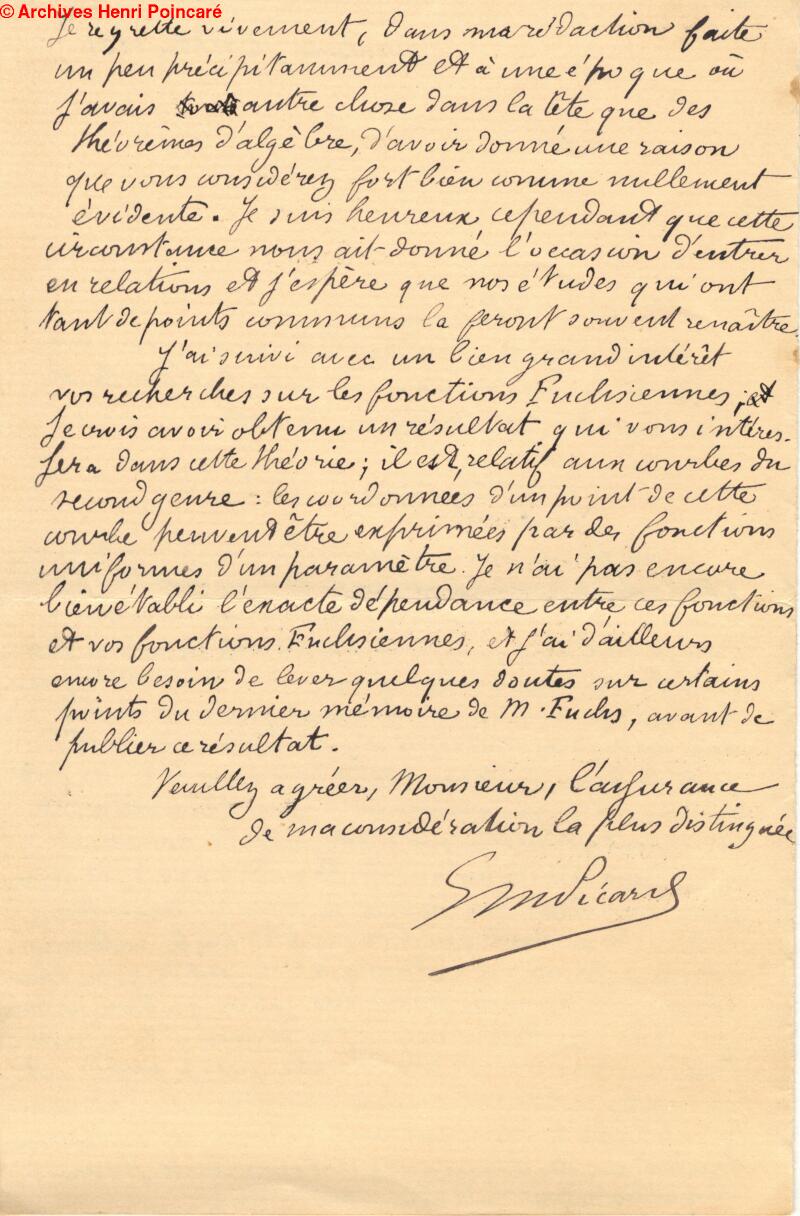 © Archives Henri Poincaré
Je regrette vivement, dans ma rédaction faite
un peu précipitamment et à une époque où
j'avais autre chose dans la tête que des
théorèmes d'algèbre, d'avoir donné une raison
que vous considérez fort bien comme nullement
évidente. Je suis heureux cependant que cette
circonstance nous ait donné l'occasion d'entrer
en relations et j'espère que nos études qui ont
tant de points communs la feront souvent renaître.
J'ai suivi avec un bien grand intérêt
vos recherches sur les fonctions Fuchsiennes ; et
je crois avoir obtenu un résultat qui vous intéres-
sera dans cette théorie ; il est relatif aux courbes du
second genre : les coordonnées d'un point de cette
courbe peuvent être exprimées par des fonctions
uniformes d'un paramètre. Je n'ai pas encore
bien établi l'exacte dépendance entre ces fonctions
et vos fonctions Fuchsiennes, et j'ai d'ailleurs
encore besoin de lever quelques doutes sur certains
points du dernier mémoire de M. Fuchs, avant de
publier ce résultat.
Veuillez agréer, Monsieur, l'assurance
de ma considération la plus distinguée
Em Picard